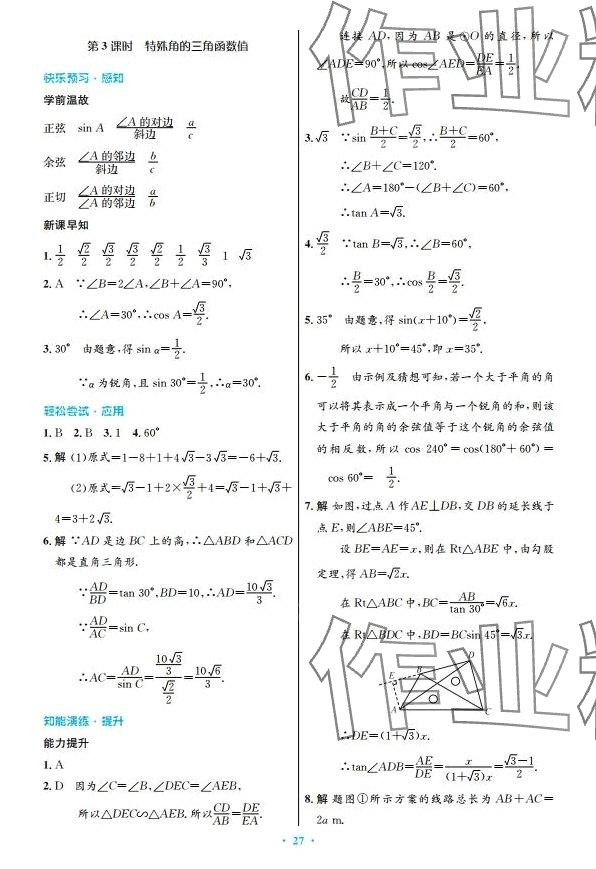 第3课时 特殊角的三角函数值
快乐预习·感知
学前温故
正弦 sin A ∠A的对边/斜边 a/c
余弦 ∠A的邻边/斜边 b/c
正切 ∠A的对边/∠A的邻边 a/b
新课早知
1. 1/2 √2/2 √3/2 √3/2 √2/2 1/2 √3/3 1 √3
2. A ∵∠B=2∠A,∠B+∠A=90°,
∴∠A=30°,∴cos A=√3/2.
3. 30° 由题意,得 sin α=1/2.
∵α为锐角,且 sin 30°=1/2,∴α=30°.
轻松尝试·应用
1. B 2. B 3. 1 4. 60°
5. 解 (1)原式=1-8+1+4√3-3√3=-6+√3.
(2)原式=√3-1+2×√3/2+4=√3-1+√3+
4=3+2√3.
6. 解 ∵AD是边BC上的高,∴△ABD和△ACD
都是直角三角形.
∵AD/BD=tan 30°,BD=10,∴AD=10√3/3.
∵AD/AC=sin C,
∴AC=AD/sin C=(10√3/3)/(√2/2)=10√6/3.
知能演练·提升
能力提升
1. A
2. D 因为∠C=∠B,∠DEC=∠AEB,
所以△DEC∽△AEB.所以CD/AB=DE/EA.
连接AD,因为AB是⊙O的直径,所以
∠ADE=90°,所以cos∠AED=DE/EA=1/2.
故CD/AB=1/2.
3. √3 ∵sin (B+C)/2=√3/2,∴(B+C)/2=60°,
∴∠B+∠C=120°.
∴∠A=180°-(∠B+∠C)=60°,
∴tan A=√3.
4. √3/2 ∵tan B=√3,∴∠B=60°,
∴B/2=30°,∴cos B/2=√3/2.
5. 35° 由题意,得 sin(x+10°)=√2/2,
所以x+10°=45°,即x=35°.
6. -1/2 由示例及猜想可知,若一个大于平角的角
可以将其表示成一个平角与一个锐角的和,则该
大于平角的角的余弦值等于这个锐角的余弦值
的相反数,所以 cos 240°=cos(180°+60°)=
cos 60°= 1/2.
7. 解 如图,过点A作AE⊥DB,交DB的延长线于
点E,则∠ABE=45°.
设BE=AE=x,则在Rt△ABE中,由勾股
定理,得AB=√2x.
在Rt△ABC中,BC=AB/tan 30°=√6x.
在Rt△BDC中,BD=BCsin 45°=√3x.
D
E B
A C
∴DE=(1+√3)x.
∴tan∠ADB=AE/DE=x/((1+√3)x)=(√3-1)/2.
8. 解 题图①所示方案的线路总长为AB+AC=
2a m.
·27·
作业精
作业精